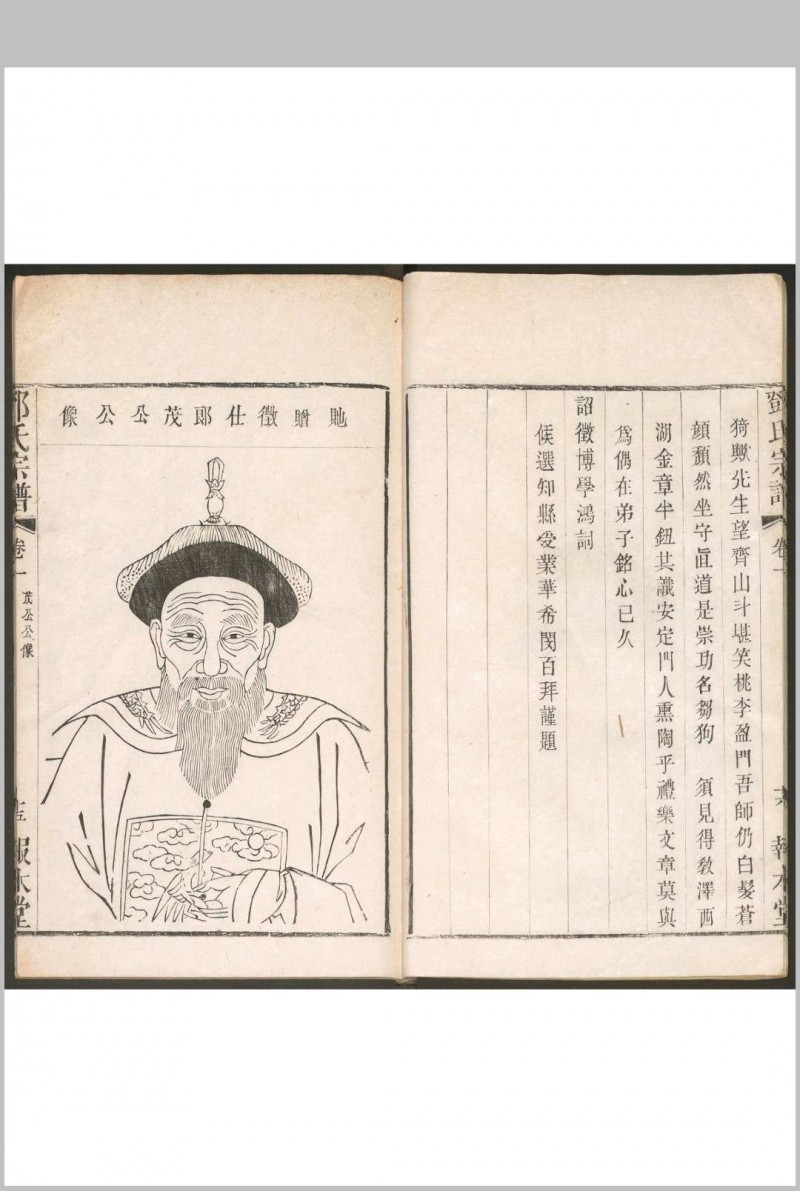 鄧氏宗譜
卷一
報本堂
猗歟先生望齊山斗堪笑桃李盈門吾師仍白髮蒼
顔頽然坐守眞道是崇功名芻狗　須見得敎澤西
湖金章半鈕其識安定門人熏陶乎禮樂文章莫與
爲偶在弟子銘心已久
詔徵博學鴻詞
候選知縣受業華希閔百拜謹題
貤贈徵仕郎茂公公像
鄧氏宗譜
卷一
茂公公像
報本堂